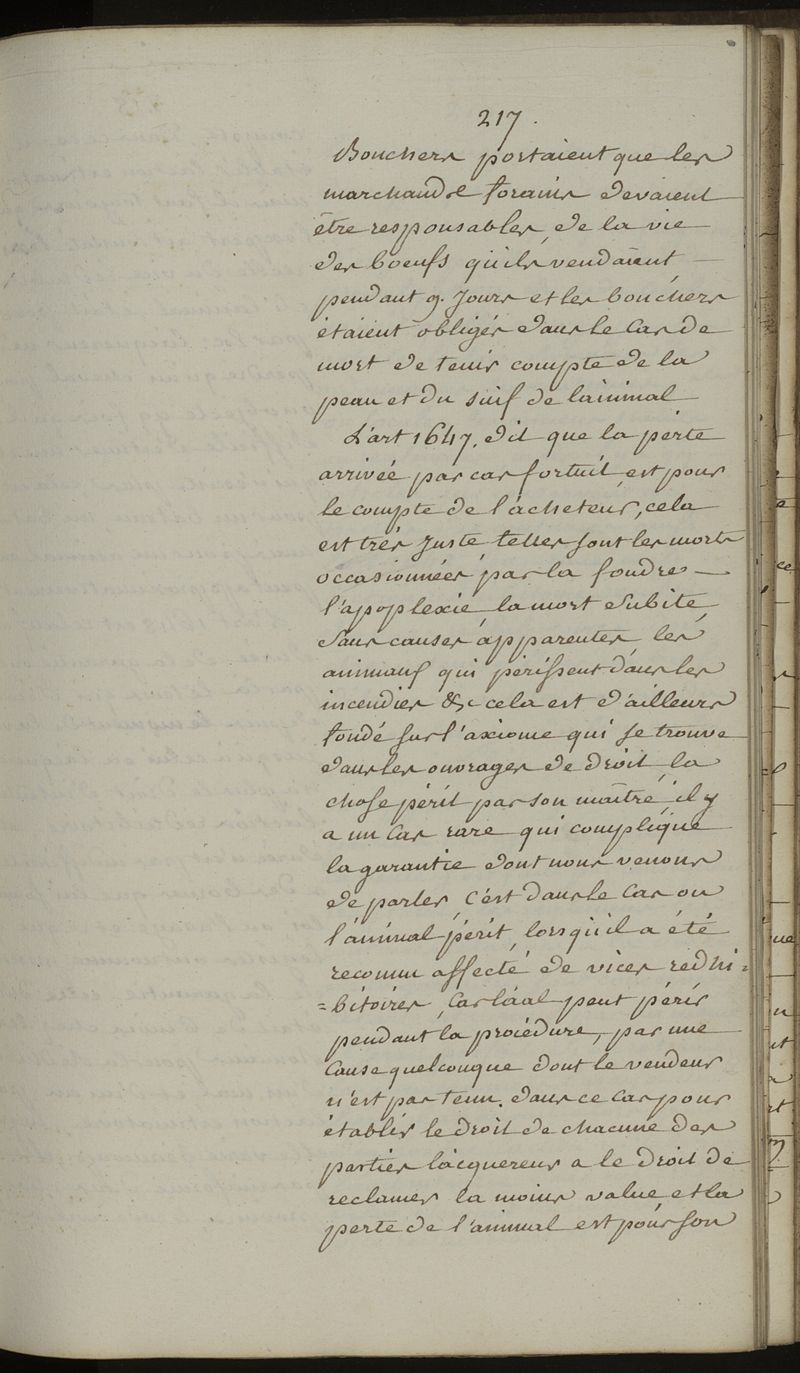 217.
Bouchers portaient que les
marchand de forains devaient
être responsables, de la vie
des boeufs qu'ils vendaient
pendant 9. Jours et les bouchers
étaient obligés dans le Cas de
mort de tenir compte de la
peau et du suif de lainimal
L'art 1647. dit que la perte
arrivée par cas fortuit, est pour
le compte de l'acheteur, cela
est très Juste, telles sont les morts
occasionnées par la foudre
l'apoplexie, la mort Subite,
Sans causes apparentes, les
animauf qui périssent dans les
incendies &c cela est d'ailleurs
fondé sur l'axiome qui se trouve
dans les ouvrages de droit, la
chose périt par son maître, il y
a un Cas rare qui complique
la garantie dont nous venons
de parler, C'est dans le Cas ou
l'animal périt, lorsqu'il a été
reconnu affecté de vices redhi=
=bitoires, Car laal peut périr
pendant la procédure, par une
Cause quelconque dont le vendeur
n'est pas tenu. dans ce Cas pour
établir le droit de chacune des
parties l'acquereur a le droit de
reclamer la moins value et la
perte de l'animal est pour son